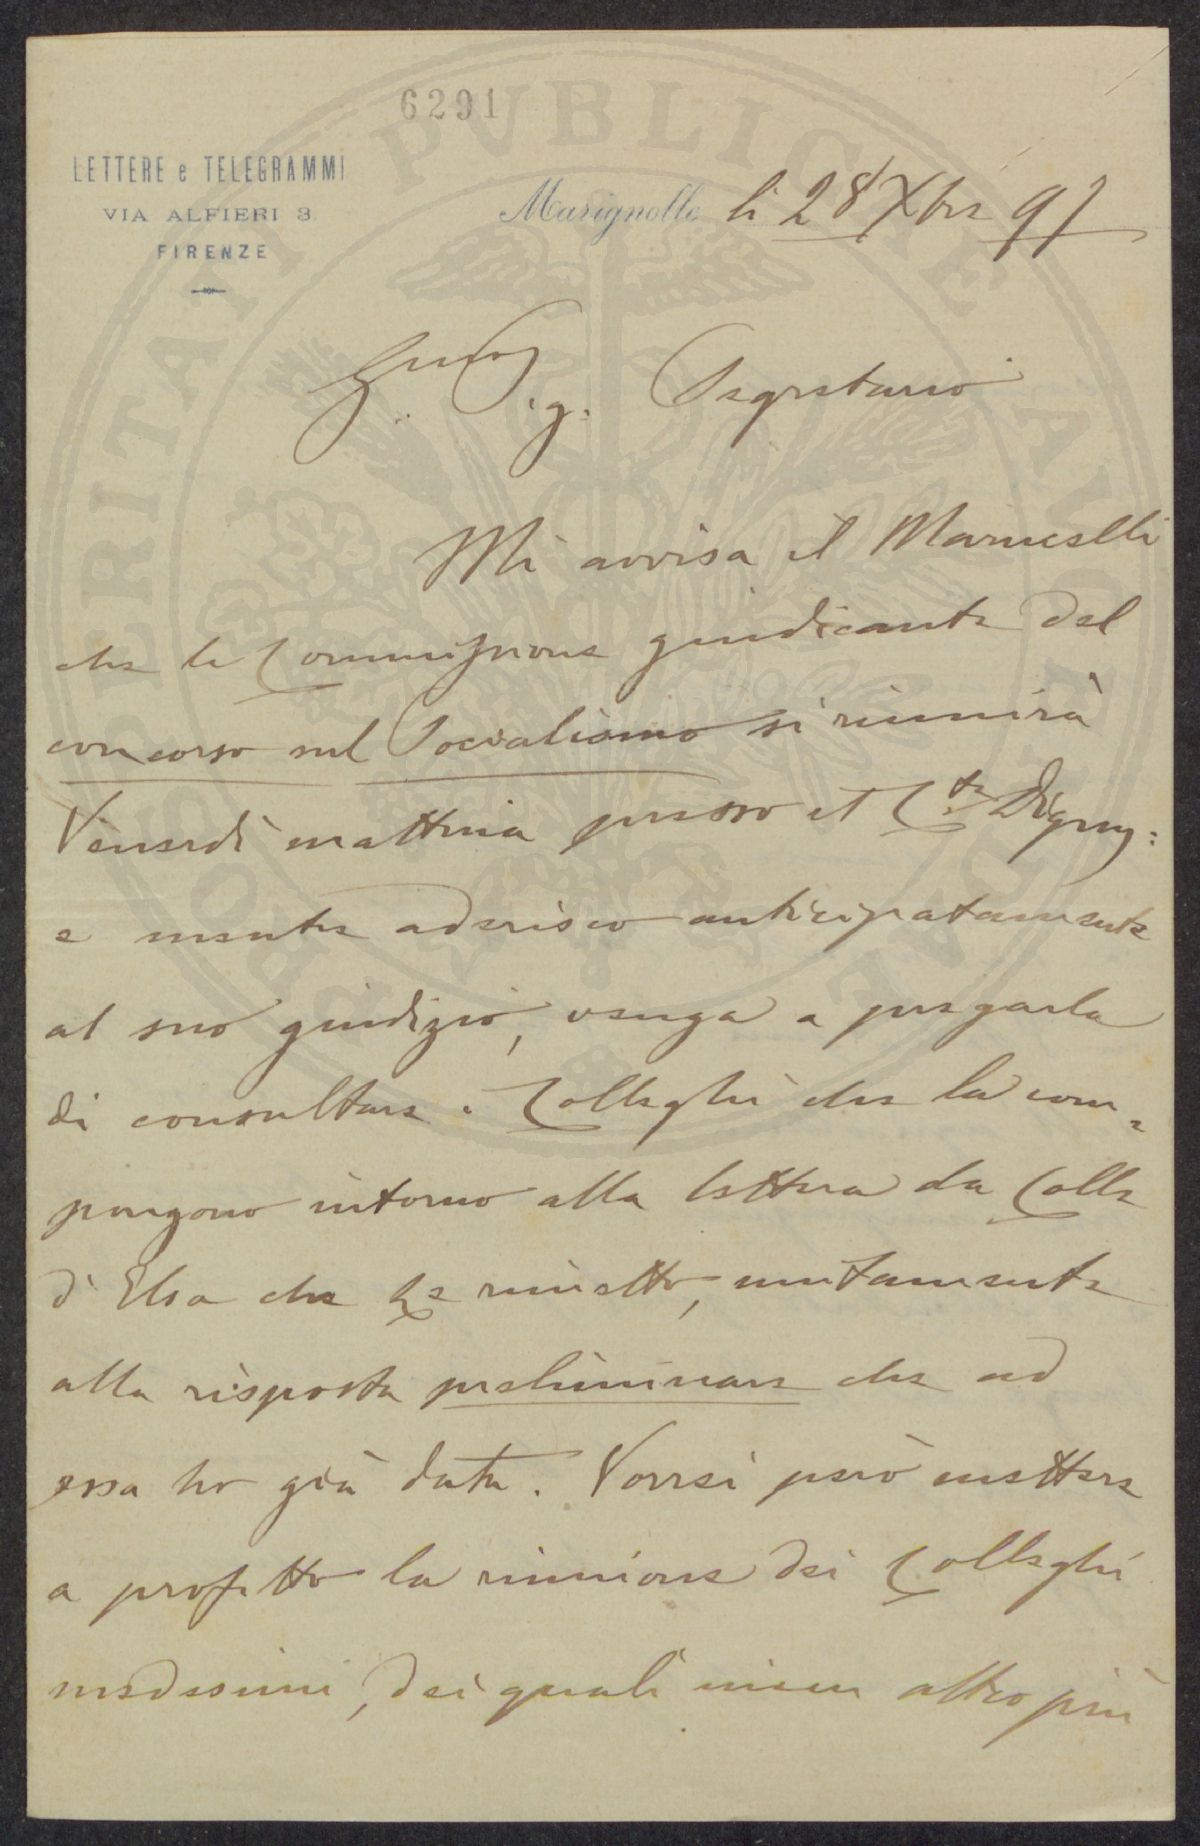 6291
LETTERE e TELEGRAMMI
VIA ALFIERI 3
FIRENZE
Marignolle li 28 Xbre 97
Sig. Segretario
Mi avvisa il Marucelli
che la Commissione giudicante del
concorso sul Socialismo si riunirà
Venerdì mattina presso il Cte Digny:
e mentre aderisco anticipatamente
al suo giudizio, vengo a pregarla
di consultare i Colleghi che la com=
pongono intorno alla lettera da Colle
d'Elsa che Le rimetto, unitamente
alla risposta preliminare che ad
essa ho già data. Vorrei però mettere
a profitto la riunione dei Colleghi
medesimi, dei quali niun altro più
PROSPERITATI PVBLICAE AVGENDAE